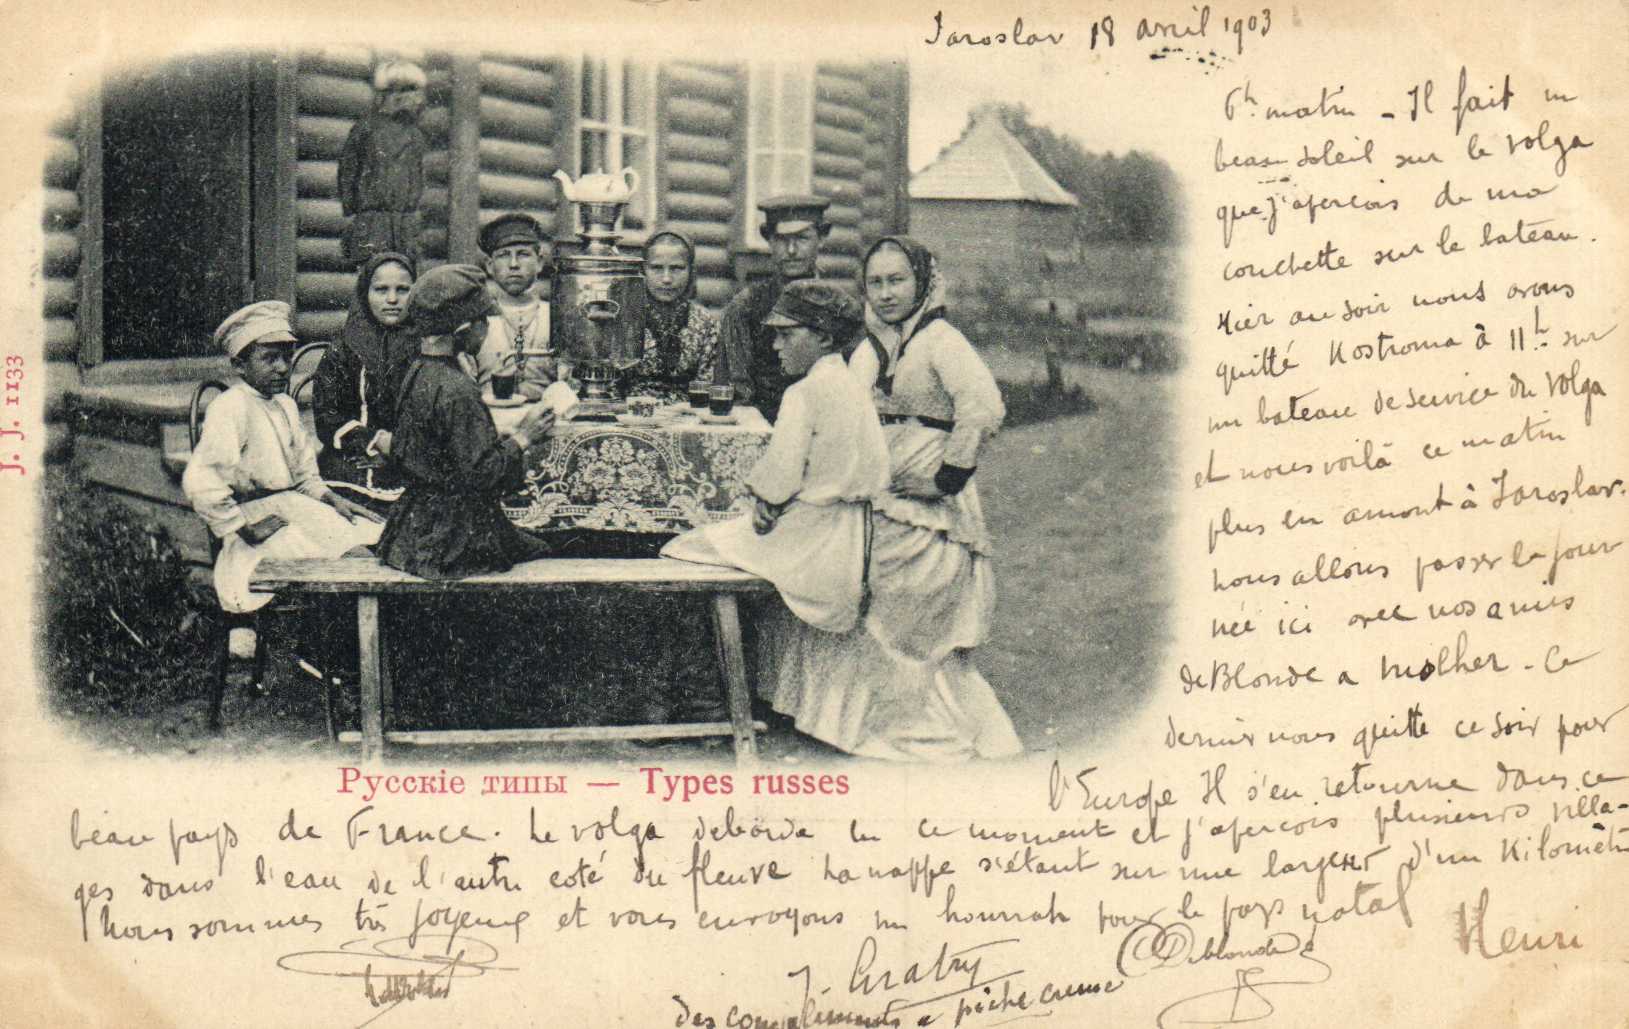 Jaroslav 18 avril 1903
6h. matin - Il fait un
beau soleil sur le Volga
que j'aperçois de ma
couchette sur le bateau.
Hier au soir nous avons
quitté Kostroma à 11h. sur
un bateau de service du Volga
et nous voilà ce matin
plus en amont à Jaroslav.
nous allons passer la jour
née ici avec nos amis
DeBlonde a Molher - Ce
dernier nous quitte ce soir pour
l'Europe Il s'en retourne dans ce
beau pays de France. Le Volga déborde en ce moment et j'aperçois plusieurs villa-
ges dans l'eau de l'autre coté du fleuve La nappe s'étant sur une largeur d'un Kilomètre
Nous sommes très joyeux et vous envoyons un hourrah pour le pays natal
Henri
Deblonde
J. Gratry
des compliments a
J. J. 1133
Русскіе типы — Types russes